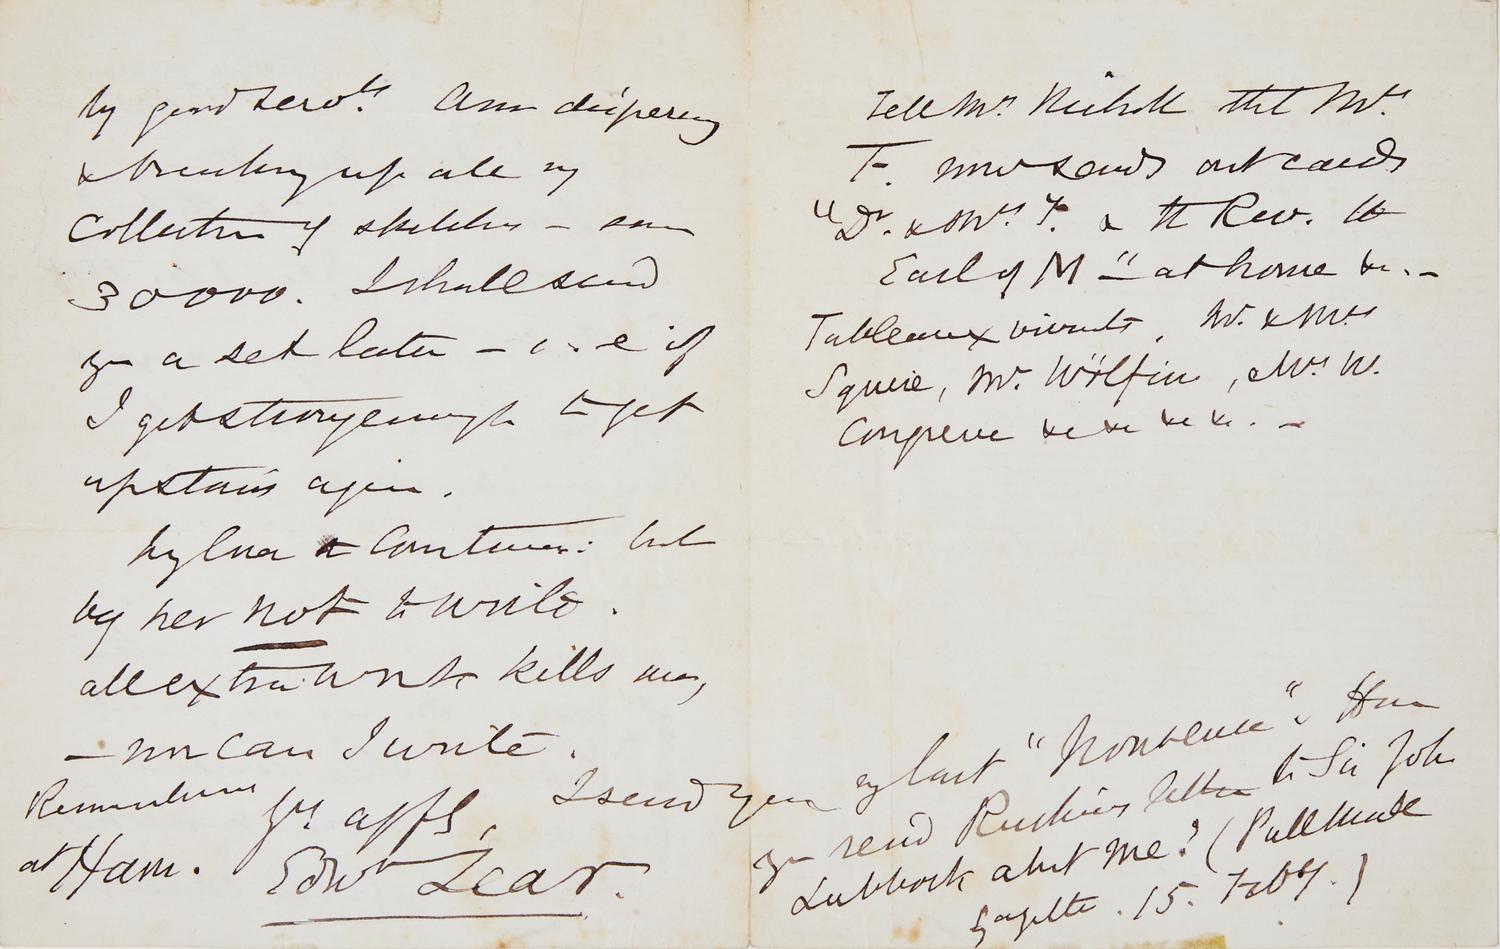 by good serv.ts Am dispersing
& breaking up all my
Collection of sketches – some
30000. I shall send
you a set later – i.e if
I get strong enough to get
upstairs again.
My love to Constance: but
beg her not to write.
all extra work kills me,
– nor can I write.
Remembrances
at Ham.
Yrs. affly,
Edwd Lear.
Tell Mrs. Nicholls that Mrs.
T. now sends out cards
"Dr. & Mrs. T. & the Rev. the
Earl of M" – at home &c. –
Tableaux vivants, Mr. & Mrs
Squire, Mr. Wölflin, Mrs. W.
Congreve &c &c &c &c. –
I send you my last "Nonsense". Have
you read Ruskin's letter to Sir John
Lubbock about me? (Pall Mall
Gazette. 15. Feby.)